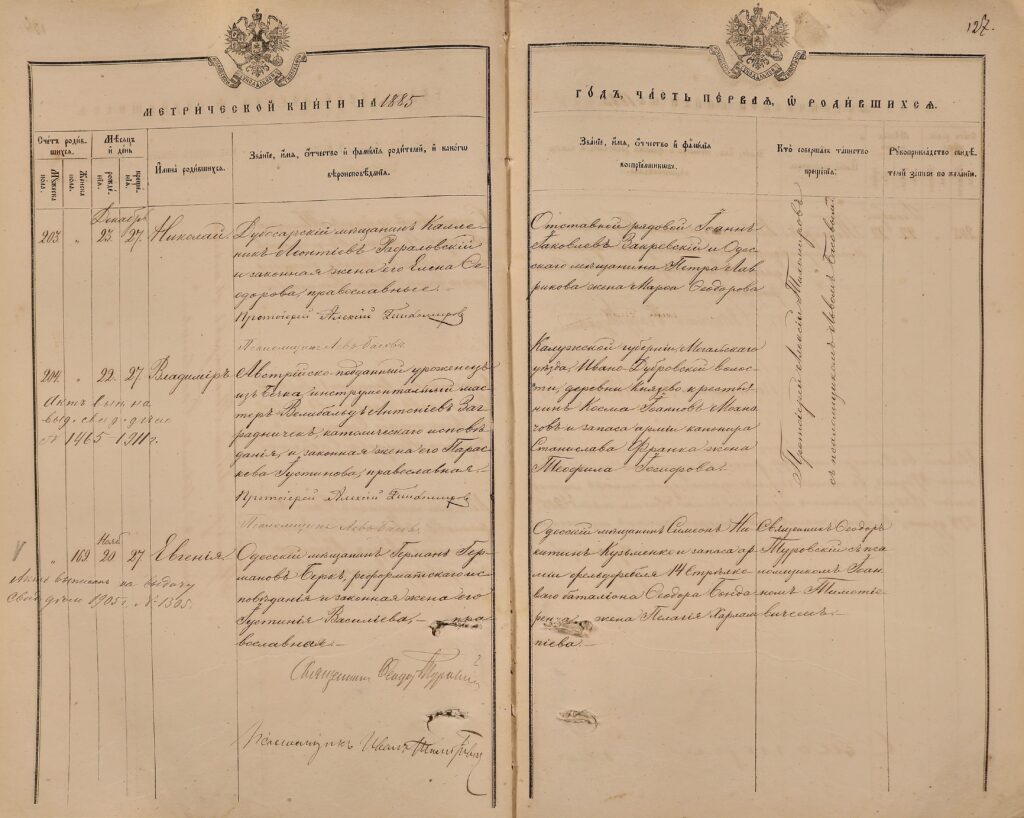 127.
МЕТРИ́ЧЕСКОЙ КНИ́ГИ НА 1885
ГО́ДЪ, ЧА́СТЬ ПЕ́РВАЯ, Ѡ РОДИ́ВШИХСЯ.
Сче́тъ роди́в-
шихся.
Му́жеска полъ.
Же́нска полъ.
Мѣ́сяцъ и день
рожде́нія.
креще́нія.
И҆мена̀ роди́вшихся.
Зва́ніе, и҆́мя, ѻ҆́тчество и҆ фами́лія роди́телей, и҆ како́гѡ
вѣроисповѣ́данія.
Зва́ніе, и҆́мя, ѻ҆́тчество и҆ фами́лія
воспрїе́мникωвъ.
Кто̀ соверша́лъ та́инство
креще́нія.
Рꙋкоприкла́дство свидѣ́-
телей за́писи по жела́нїю.
Декабрь
203. " 23. 27. Николай
Дубосарскій мѣщанинъ Калле-
никъ Леонтіевъ Рафаловскій
и законная жена его Елена Ѳе-
одорова, православные.
Протоіерей Алексій Тихомировъ
Псаломщикъ Левъ Басевъ
Отставной рядовой Іоаннъ
Іаковлевъ Закревскій и Одес-
скаго мѣщанина Петра Лав-
рикова жена Марѳа Ѳеодорова
Протоіерей Алексій Тихомировъ
съ псаломщикомъ Львомъ Басевымъ.
204. " 22. 27. Владиміръ
Актъ вып. на
выд. свид. дано
№ 1465 1911 г.
Австрійско-подданный уроженецъ
изъ Бѣчка, инструментальный мас-
теръ Вилибальдъ Антоніевъ Заг-
радничекъ, католическаго исповѣ-
данія, и законная жена его Парас-
кева Іустинова, православная.
Протоіерей Алексій Тихомировъ
Псаломщикъ Левъ Басевъ
Калужской губерніи, Мосальскаго
уѣзда, Ивано-Дубровской волос-
ти, деревни Князево крестья-
нинъ Косма Іоанновъ
и запаса арміи канонира
Станислава Франка жена
Теофила Іосифова
V
Нояб
" 169. 20 27. Евгенія.
Актъ выписанъ на выдачу
1905 г. № 1365.
Одесскій мѣщанинъ Германъ Гер-
мановъ Беркъ, реформатскаго ис-
повѣданія и законная жена его
Іустинія Васильева, пра
вославная.
Священникъ Ѳеодоръ Туровскій
Псаломщикъ Иванъ
Одесскій мѣщанинъ Симеонъ Ни-
китинъ Кузьменко и запаса ар-
міи фельдфебеля 14 Стрѣлко-
ваго баталіона Ѳеодора Бонда
ренко жена Пелагія Харлам-
піева.
Священникъ Ѳеодоръ
Туровскій съ пса
ломщикомъ Іоан
номъ Тимоѳіе-
вичемъ.